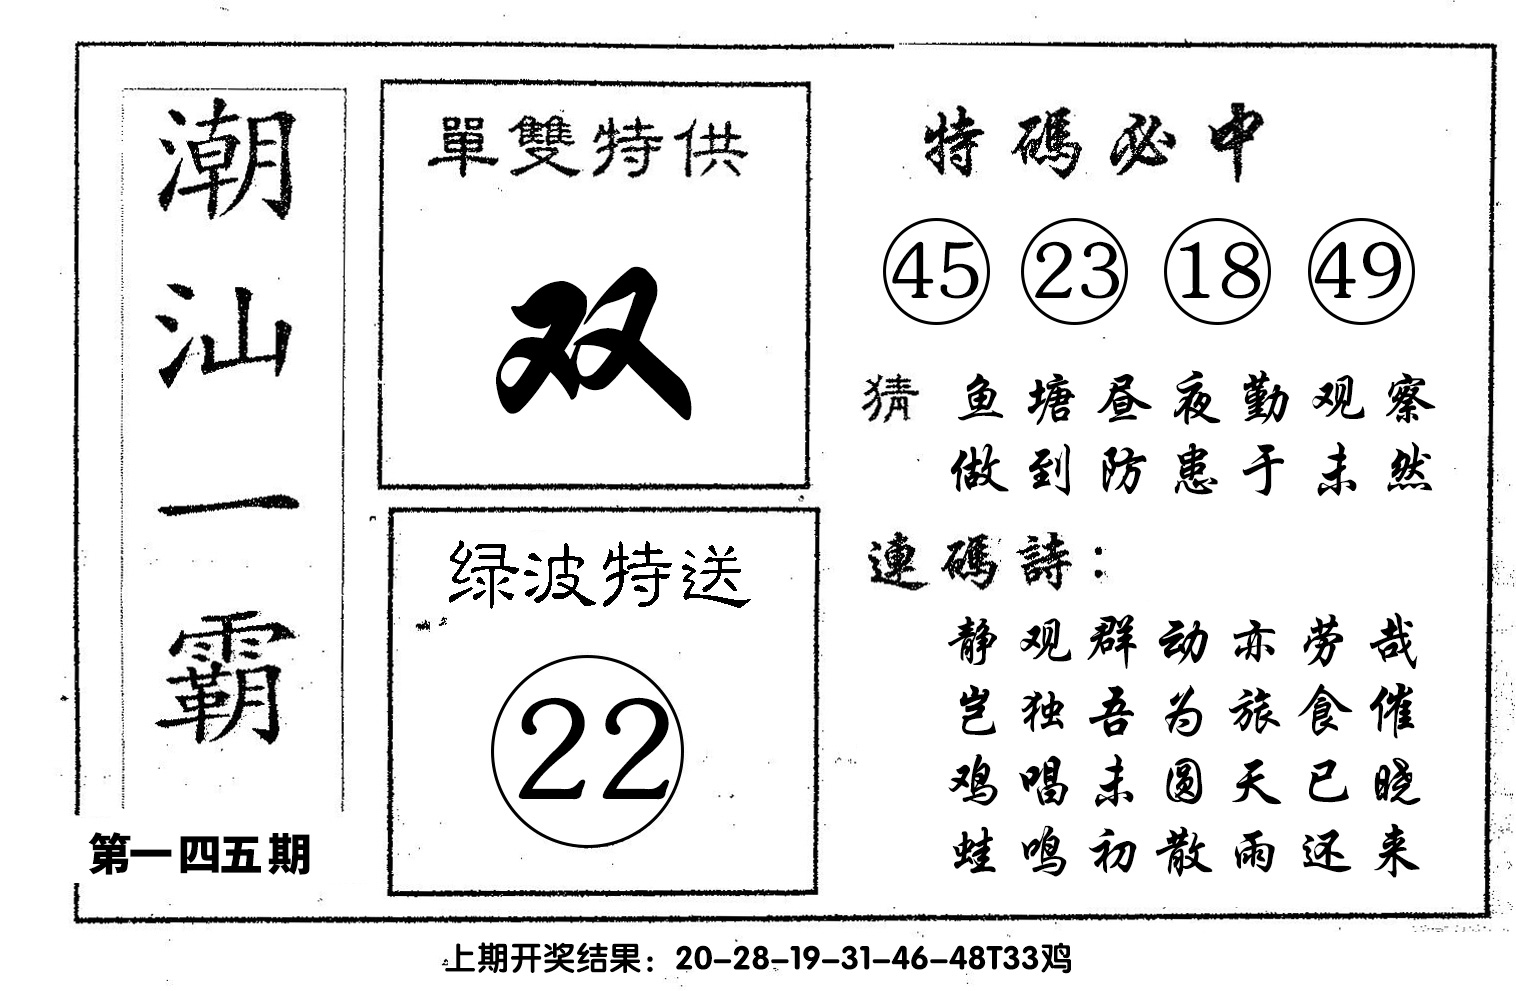 潮汕一霸
第一四五期
單雙特供
双
绿波特送
22
特碼必中
45 23 18 49
猜 鱼塘昼夜勤观察
做到防患于未然
連碼詩：
静观群动亦劳哉
岂独吾为旅食催
鸡唱未圆天已晓
蛙鸣初散雨还来
上期开奖结果：20-28-19-31-46-48T33鸡